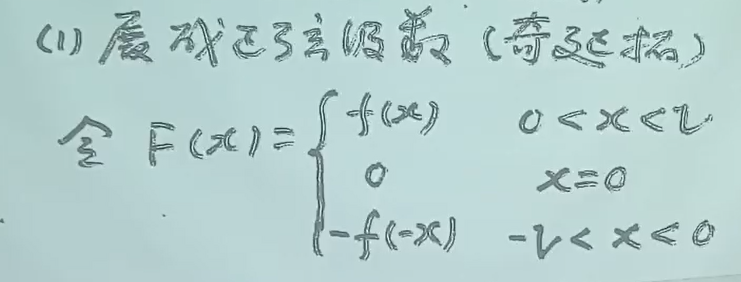 (1) 展成正弦级数 (奇延拓)
令 F(x) = { f(x) 0 < x < l
0 x = 0
-f(-x) -l < x < 0